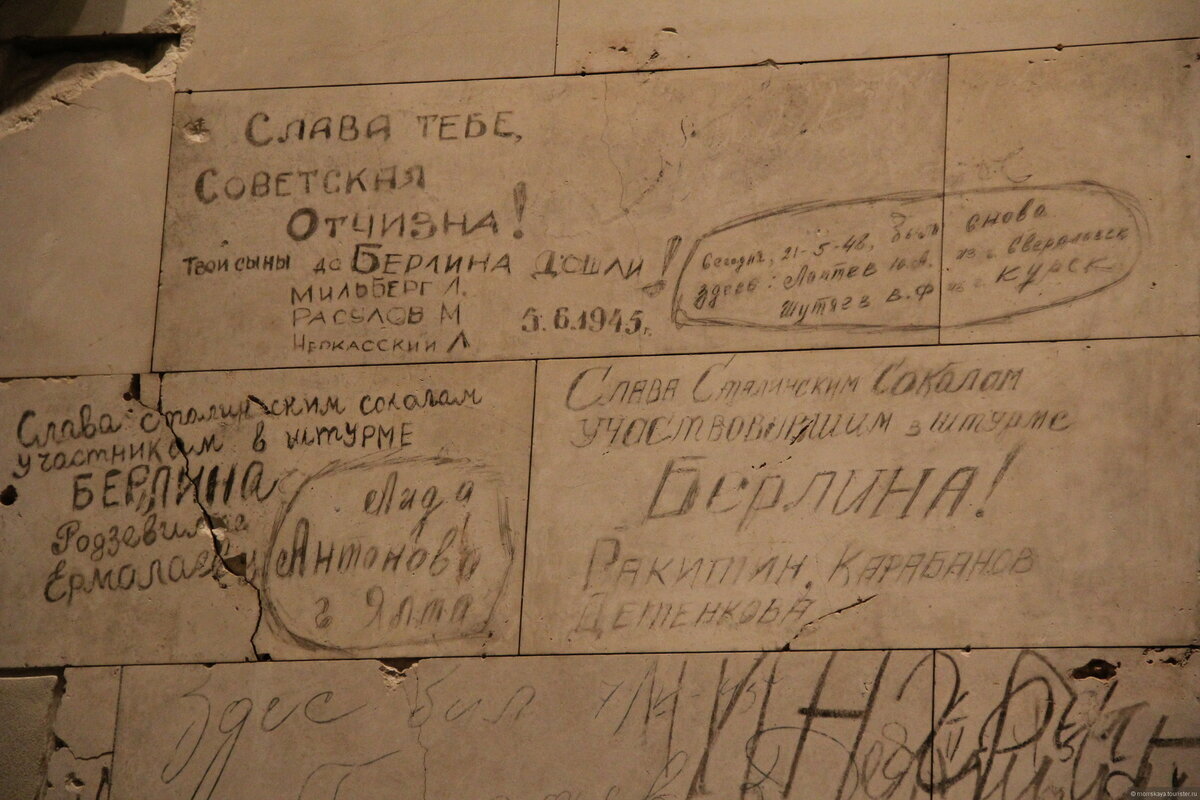 СЛАВА ТЕБЕ,
СОВЕТСКАЯ
ОТЧИЗНА!
ТВОИ СЫНЫ до БЕРЛИНА ДОШЛИ!
МИЛЬБЕРГ Л.
РАСУЛОВ М
ЧЕРКАССКИЙ Л
5.6.1945г.
Сегодня, 21-5-48, были снова
здесь: Лаптев Ю.А. из г. Свердловск
Шутяев В.Ф из г. КУРСК
Слава сталинским соколам
участникам в ШТУРМЕ
БЕРЛИНА
Ермалаев
Лида
Антонова
г Ялта
СЛАВА СТАЛИНСКИМ СОКОЛАМ
УЧАСТВОВАВШИМ в ШТУРМЕ
БЕРЛИНА!
РАКИТИН, КАРАБАНОВ
ДЕТЕНКОВА
Здес бил
© morrskaya.tourister.ru